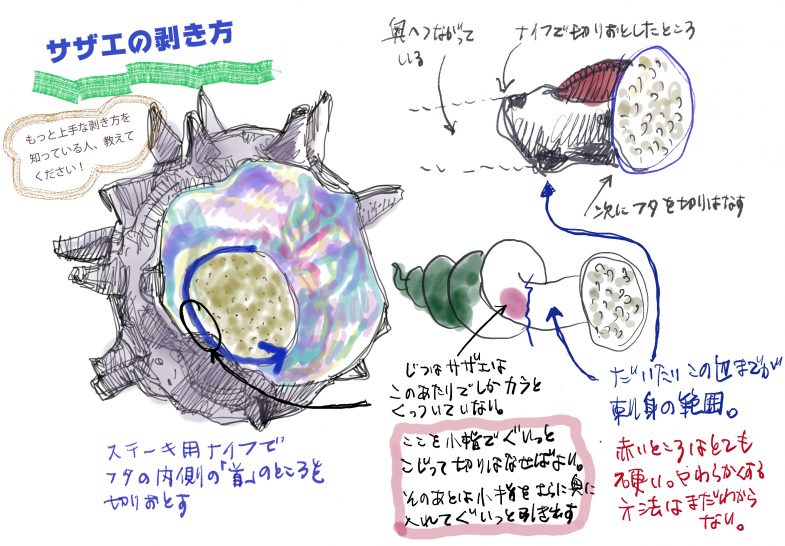 サザエの剥き方
もっと上手な剥き方を
知っている人、教えて
ください！
奥へつながって
いる
ナイフで切りおとしたところ
次にフタを切りはなす
じつはサザエは
このあたりでしかカラと
くっついていない。
ここを小指でぐいっと
こじって切りはなせばよい。
そのあとは小指をさらに奥に
入れてぐいっと引き出す
だいたいこの辺までが
刺身の範囲。
赤いところはとても
硬い。やわらかくする
方法はまだわから
ない。
ステーキ用ナイフで
フタの内側の「首」のところを
切りおとす